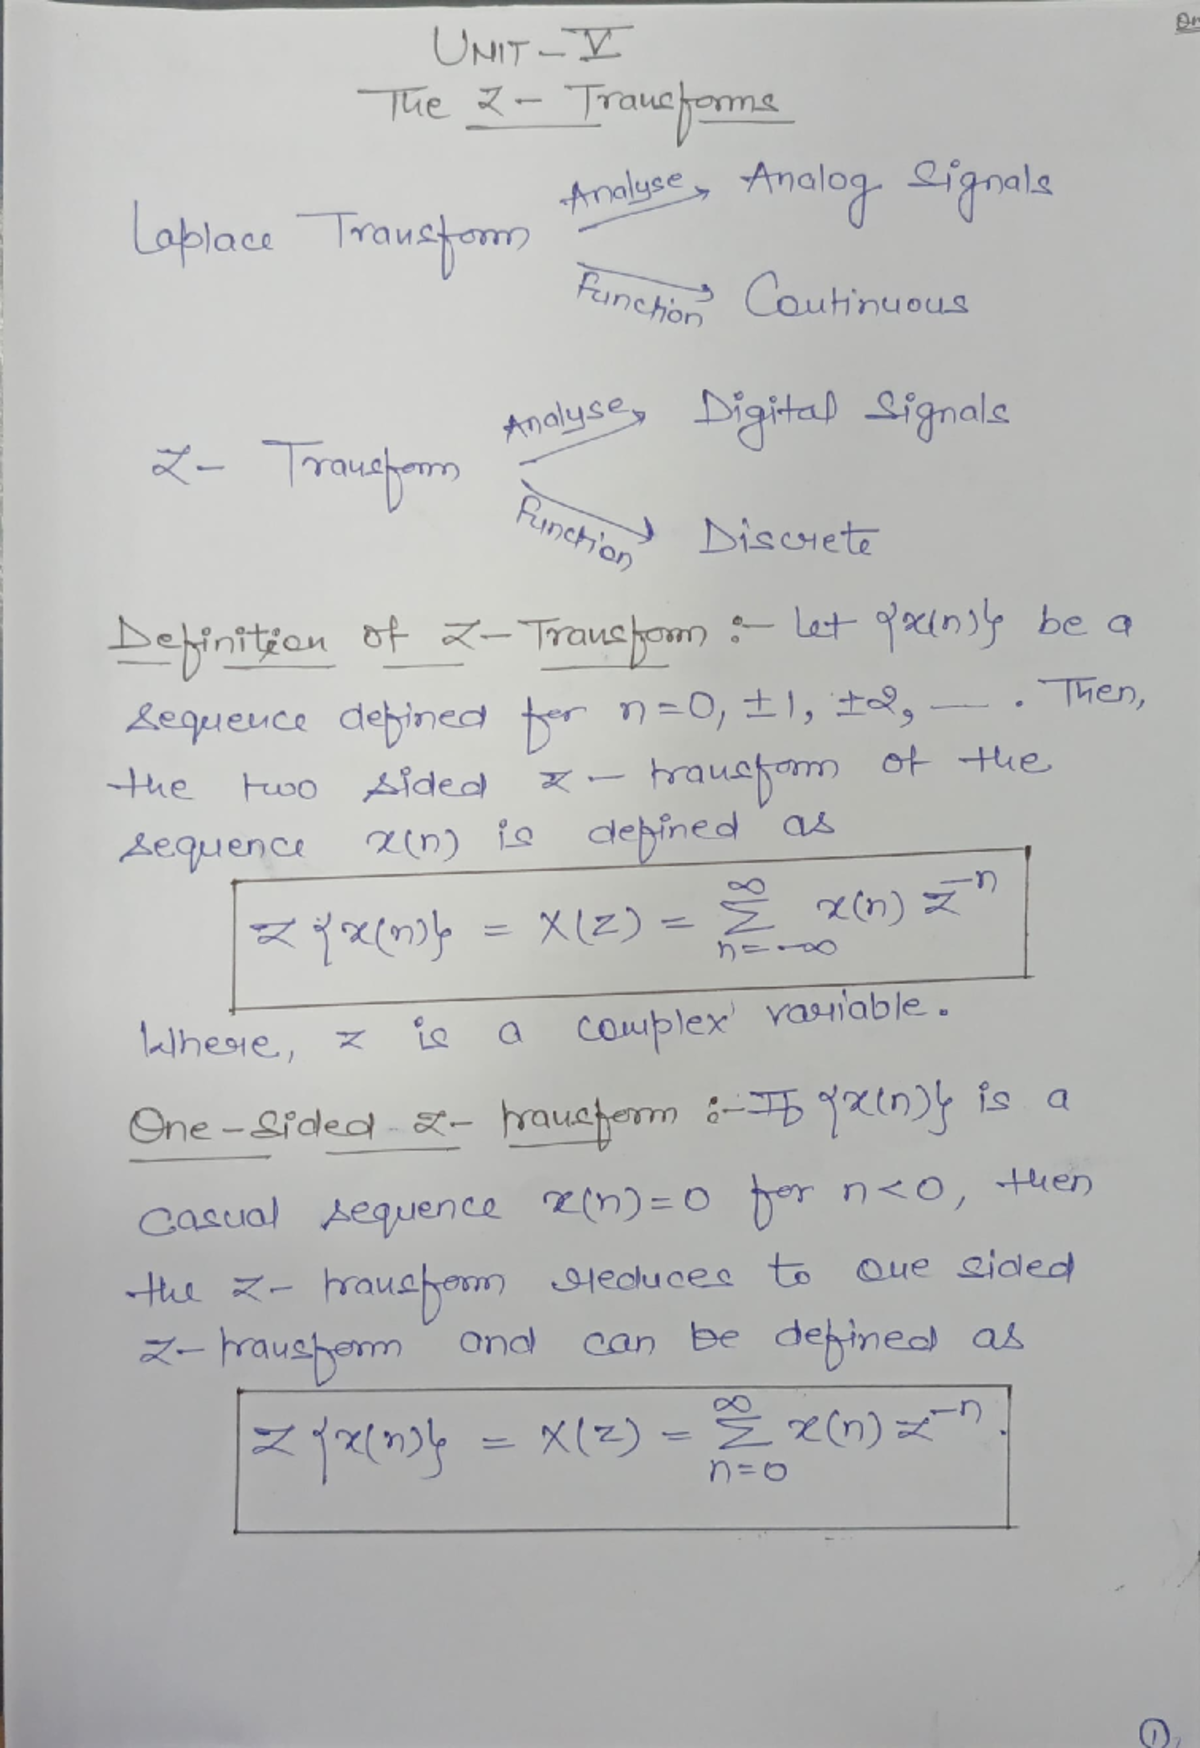 UNIT-V
The Z-Transforms
Analyse Analog Signals
Laplace Transform
Function Continuous
Analyse Digital Signals
Z- Transform
Function Discrete
Definition of Z-Transform :- Let {x(n)} be a
sequence defined for n=0, ±1, ±2, — . Then,
the two sided z-transform of the
sequence x(n) is defined as
Z{x(n)} = X(z) = ∑_{n=-∞}^{∞} x(n) z^{-n}
Where, z is a complex variable.
One-sided z-transform :- If {x(n)} is a
Casual sequence x(n)=0 for n<0, then
the z-transform reduces to one sided
z-transform and can be defined as
Z{x(n)} = X(z) = ∑_{n=0}^{∞} x(n) z^{-n}.
1